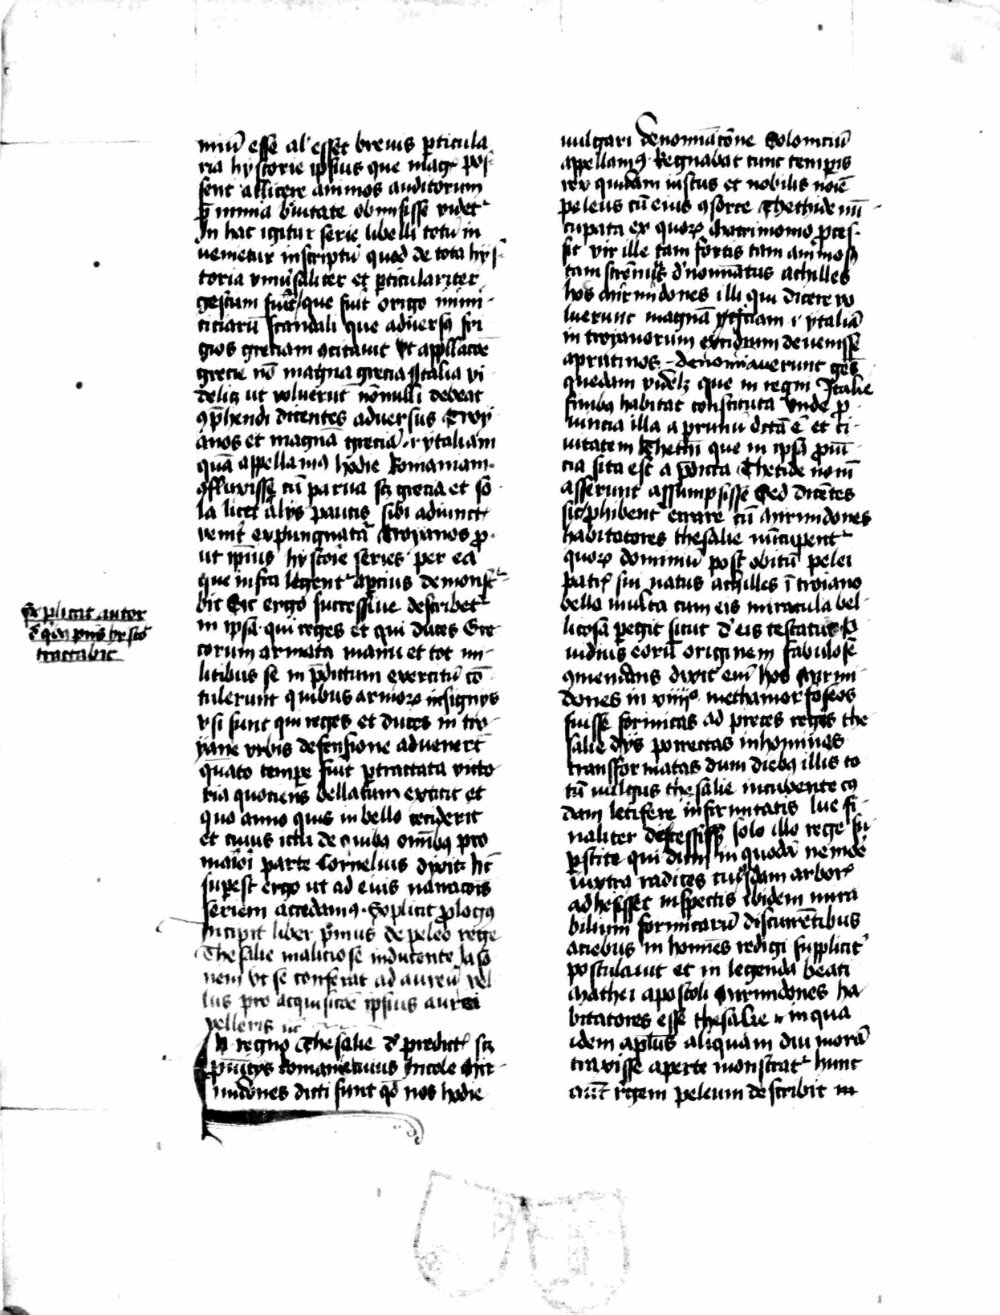 miū esse al' esset breuis p̲ticula
ria hystorie ip̄sius que mag̲ pos
sent allicere animos auditorum
p̲ nimia b'uitate obmisisse videt²
In hac igitur serie libelli totū in
uenietur inscriptū quod de tota hys
toria vniūsaliter et p̲ticulariter
gestum fuit que fuit origo inimi
citiarū scandali que adversꝰ fri
gios greciam ꝯcitauit vt app̄llacōe
grecie nō magna grecia Italia vi
delicꝫ ut voluerūt nōnulli debeat
ꝯp̲hendi dicentes adversus Troy
anos et magnā greciā .i. ytaliam
quā appellamꝰ hodie Romaniam
ꝯfluxisse cū parua scꝫ grecia et so
la licet alijs paucis sibi adiunct
venit expungnatū troyanos p̲
ut ip̄ius hystorie series per ea
que infra legent² ap̲cius demonst²
bit Sic ergo successiue describet²
in ipsa qui reges et qui duces Gre
corum armata manu et tot mi
litibus se in p̄dictum exercitū cō
tulerunt quibus armoꝝ insignijs
vsi sunt qui reges et duces in tro
yane vrbis defensione aduenerūt
quāto tempe fuit p̲tractata victo
ria quociens bellatum extitit et
quo anno quis in bello ceciderit
et cuius ictu de quibꝰ omībꝫ pro
maiori parte Cornelius dixit hic
sup̲est ergo ut ad eius narracōis
seriem accedamꝰ. Explicit p̲logꝰ
Incipit liber p̄mus de peleo rege
Thesalie maliciose inducente Jaso
nem vt se conferat ad aureū vel
lus pro acquisicōe ip̄sius aurei
velleris
In regno Thesalie d' predict² scꝫ
p̲uincijs romanie cuius incole Mir
midones dicti sunt qd̄ nos hodie
Explicat autor
d' quo p̄ns hystō
tractabit
vulgari denominacōne Solomciū
appellamꝰ Regnabat tunc temp̲is
rex quidam iustus et nobilis noīe
peleus cū eius ꝯsorte Thethide nū
cupata ex quoꝝ matrimonio p̲ces
sit vir ille tam fortis tam animosꝰ
tam strēnuꝰ d'nom̄natus achilles
hos mirmidones illi qui dicere vo
luerunt magnā greciam .i. ytaliā
in troyanorum excidium deuenisse
apratinos denominauerunt gēs
quedam videlꝫ que in regni Italie
finibꝫ habitat constituta vnde p̲
uincia illa aprutiū dicta ē et ci
uitatem Thethi que in ip̄sa p̲uī
cia sita est a p̄dicta Thetide nomē
asserunt assumpsisse Sed dicētes
sic p̲hibent errare cū mirmidones
habitatores thesalie nūcupent²
quoꝝ dominiū post obitū pelei
patris sui natus achilles ī troiano
bello multa cum eis miracula bel
licosa p̲egit sicut d' eis testatur O
uidius eorū originem fabulose
ꝯmendans dixit enī hos mirmi
dones in viiij° methamorfoseos
fuisse formicas ad preces regis the
salie dijs porrectas in homines
transformatas dum diebꝫ illis to
tū vulgus thesalie incubente cꝯ
dam letifere infirmitatis lue fi
naliter decessisset solo illo rege su
p̲stite qui dum in quodā nemōe
iuxta radices cuiusdam arboris
adhesisset inspectis ibidem mira
bilium formicarū discurentibus
aciebus in homēs redigi supplicit²
postulauit et in legenda beati
Mathei apostoli mirmidones ha
bitatores esse thesalie in qua
idem ap̄lus aliquam diu morā
traxisse aperte monstrat² hunc
autē regem peleum describit in